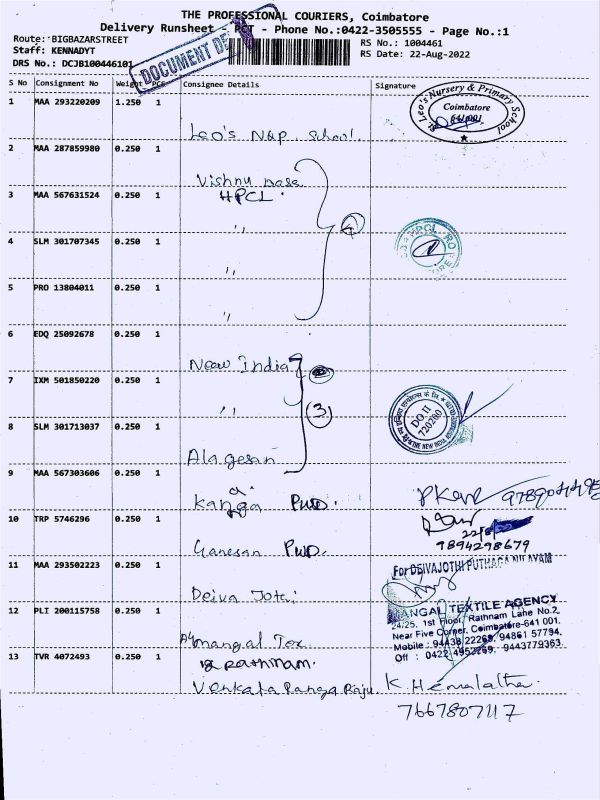 THE PROFESSIONAL COURIERS, Coimbatore
Delivery Runsheet - PCT - Phone No.:0422-3505555 - Page No.:1
Route: BIGBAZARSTREET
RS No.: 1004461
Staff: KENNADYT
RS Date: 22-Aug-2022
DRS No.: DCJB100446101
DOCUMENT
S No Consignment No Weight PCS Consignee Details Signature
1 MAA 293220209 1.250 1
Leo's N&P School.
St. Leo's Nursery & Primary School
Coimbatore
641001
2 MAA 287859980 0.250 1
Vishnu
3 MAA 567631524 0.250 1
HPCL
"
4
4 SLM 301707345 0.250 1
"
HPCL RO
5 PRO 13804011 0.250 1
"
6 EDQ 25092678 0.250 1
New India
7 IXM 501850220 0.250 1
"
3
DO II
720200
THE NEW INDIA
8 SLM 301713037 0.250 1
Alagesan
9 MAA 567303606 0.250 1
Kanga PWD.
10 TRP 5746296 0.250 1
9894298679
Ganesan PWD.
11 MAA 293502223 0.250 1
For DEIVAJOTHI PUTHAGA NILAYAM
Deiva Joti
12 PLI 200115758 0.250 1
Mangal Tex
MANGAL TEXTILE AGENCY
24/25, 1st Floor, Rathnam Lane No.2,
Near Five Corner, Coimbatore-641 001.
Mobile : 94438 22269, 94861 57794,
Off : 0422 4952269, 9443779363
13 TVR 4072493 0.250 1
Rathinam.
Venkata Ranga Raju
K. Hemalatha.
7667807117